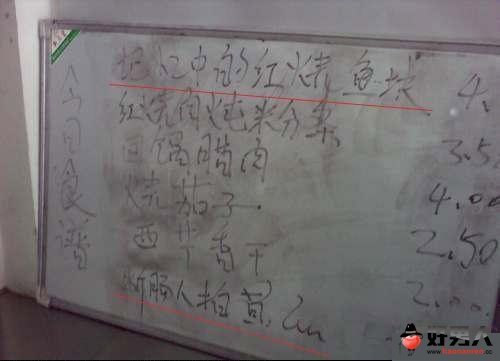 今日食谱
记忆中的红烧鱼块 4.
红烧肉炖粉条 3.5
回锅腊肉 4.00
烧茄子 2.50
西芹香干 2.00
断肠人拍黄瓜
好男人